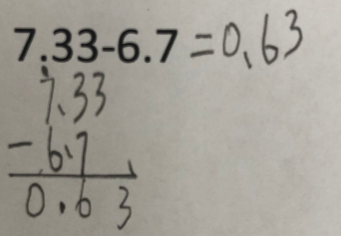 7.33-6.7=0.63
7.33
-6.7
0.63